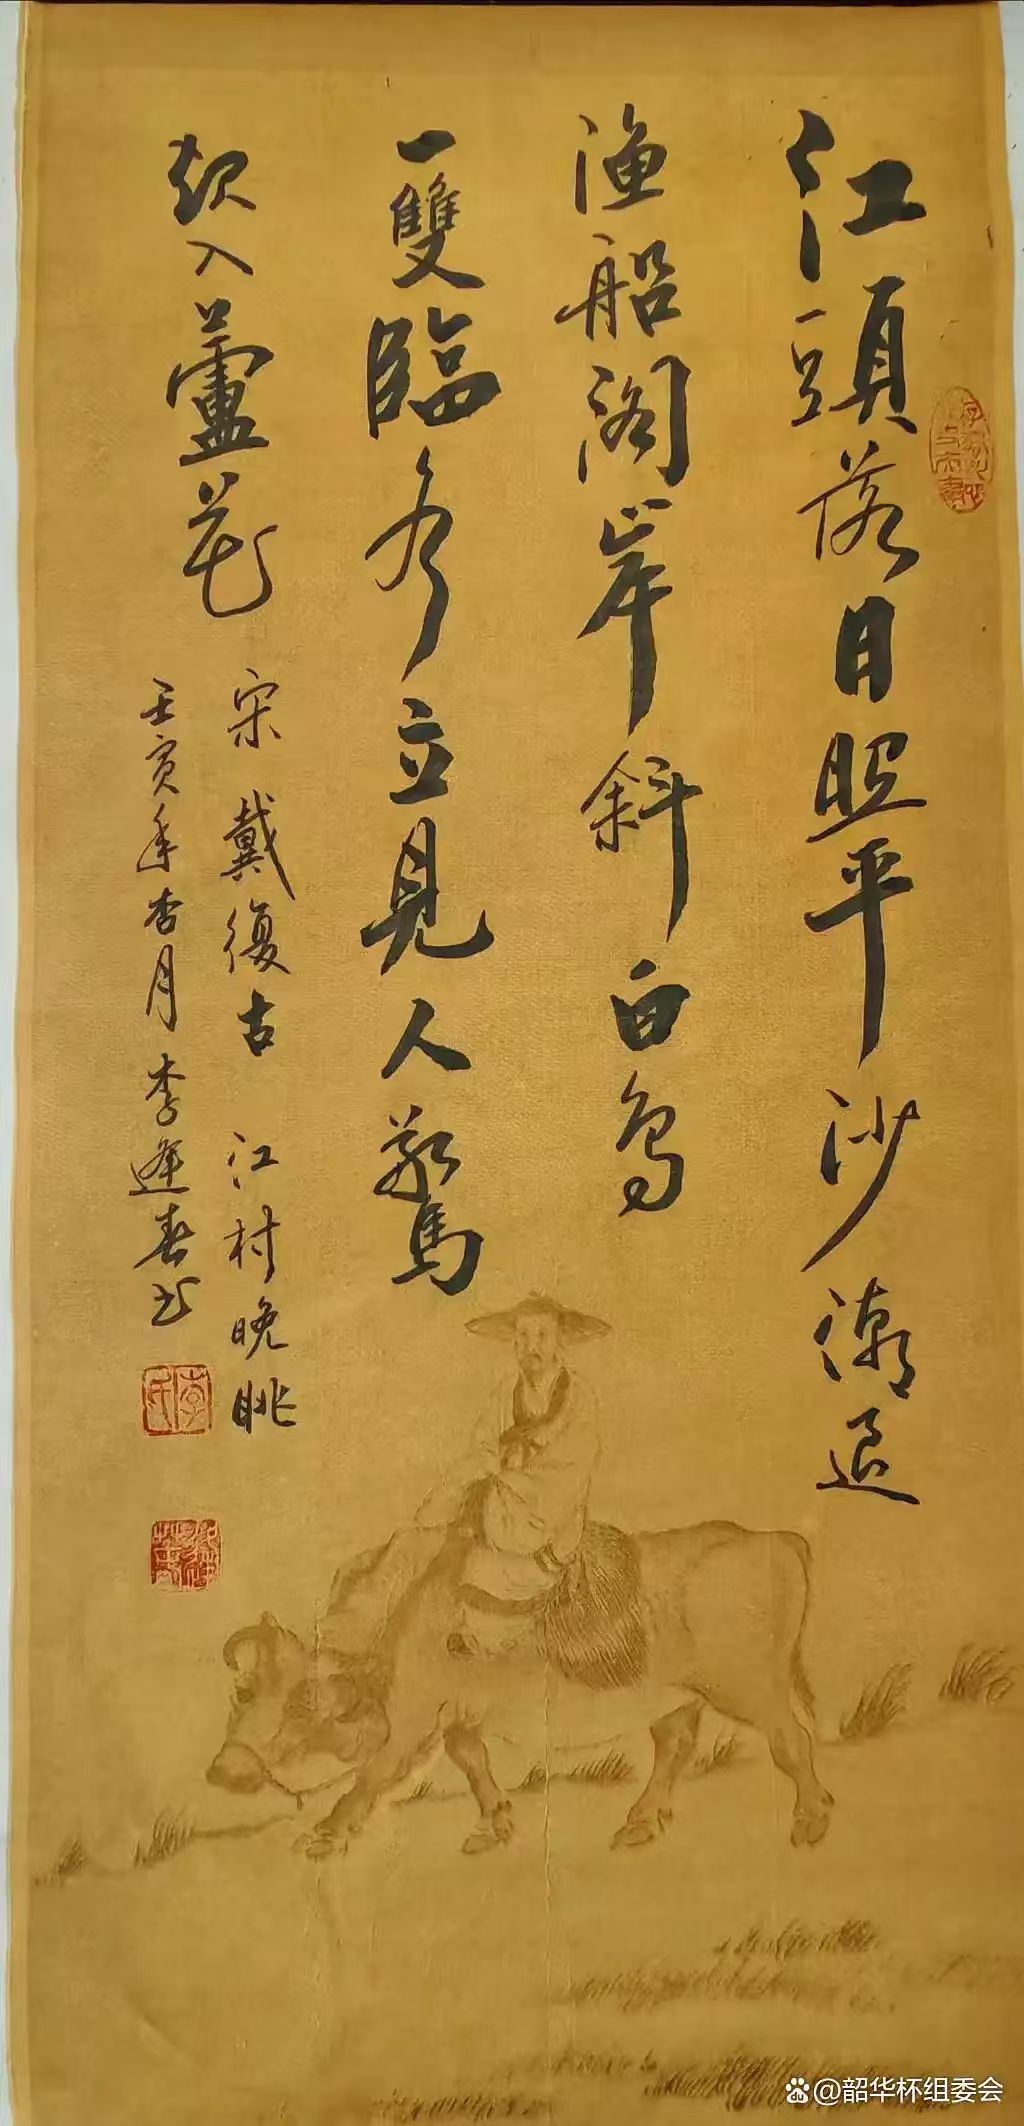 江頭落日照平沙潮退
渔船閣岸斜白鳥
一雙臨水立見人驚
起入蘆花
宋 戴復古 江村晚眺
壬寅年杏月李逢春书
李氏
@韶华杯组委会